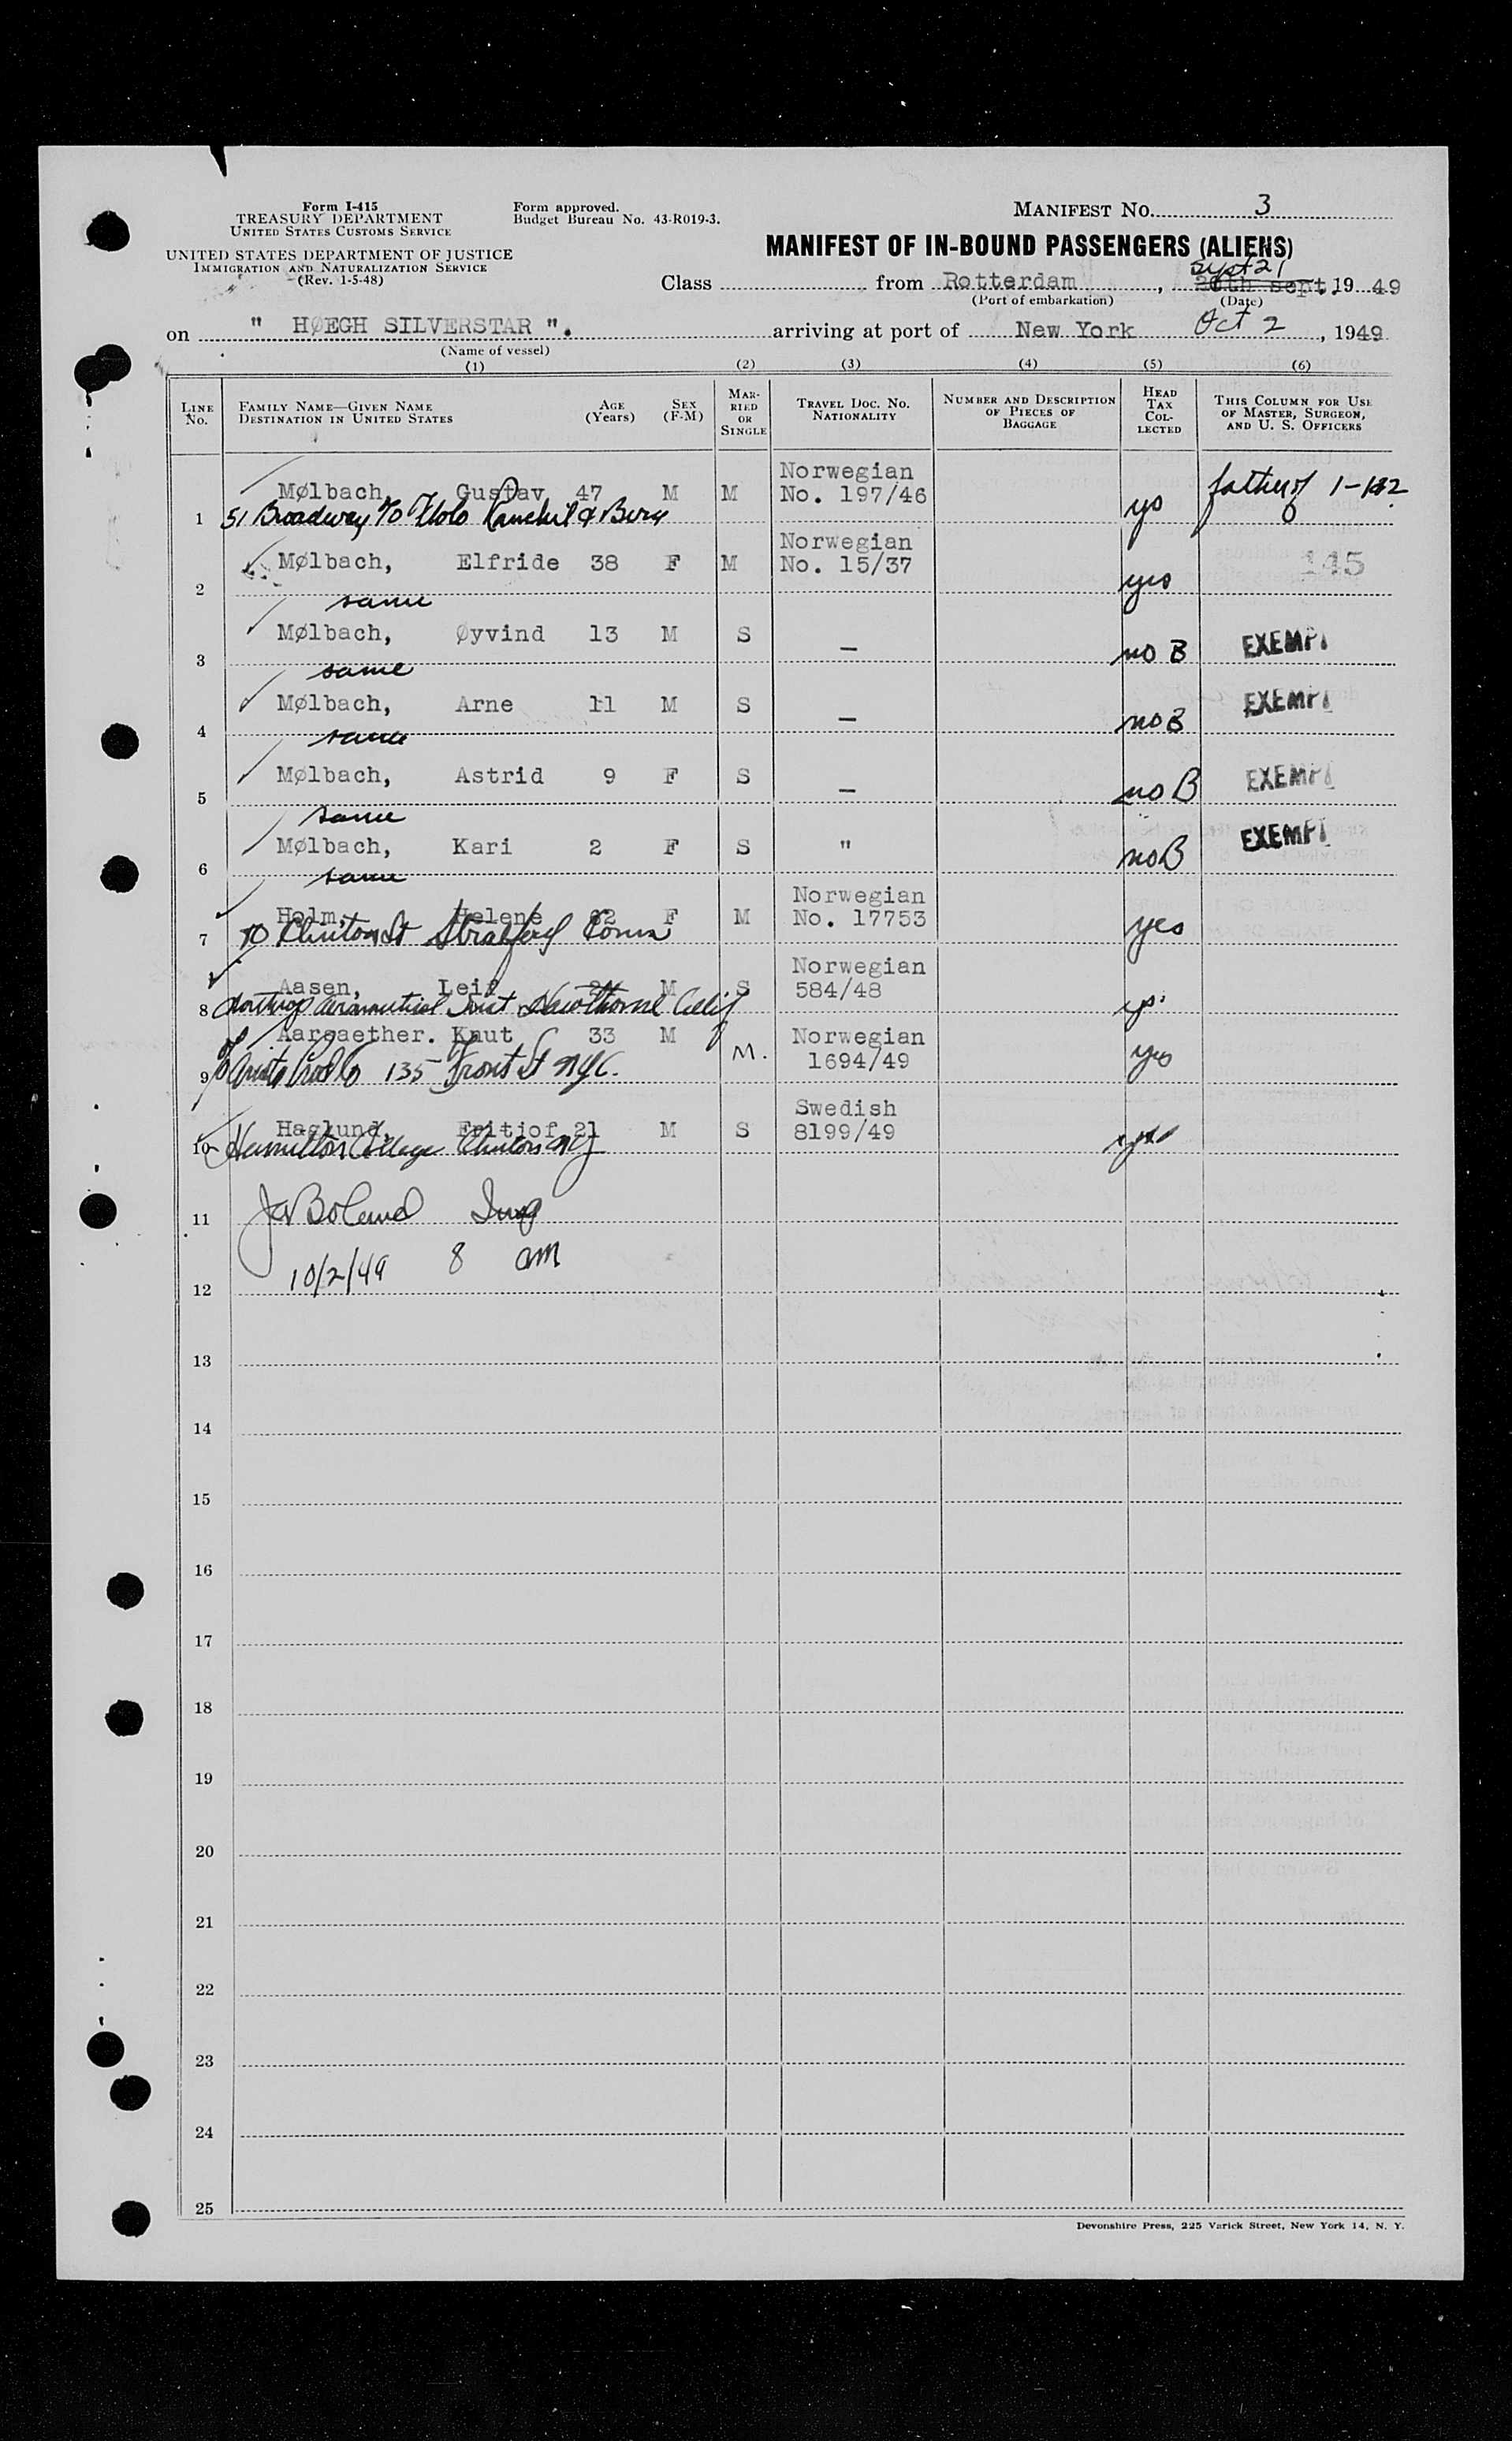 Form I-415
TREASURY DEPARTMENT
UNITED STATES CUSTOMS SERVICE
UNITED STATES DEPARTMENT OF JUSTICE
IMMIGRATION AND NATURALIZATION SERVICE
(Rev. 1-5-48)
Form approved.
Budget Bureau No. 43-R019-3.
MANIFEST No. 3
MANIFEST OF IN-BOUND PASSENGERS (ALIENS)
Sept 21
Class from Rotterdam, 20th sept. 19 49
(Port of embarkation) (Date)
on " HØEGH SILVERSTAR ". arriving at port of New York Oct 2, 1949
(Name of vessel)
(1) (2) (3) (4) (5) (6)
LINE No. FAMILY NAME—GIVEN NAME DESTINATION IN UNITED STATES AGE (Years) SEX (F-M) MARRIED OR SINGLE TRAVEL DOC. No. NATIONALITY NUMBER AND DESCRIPTION OF PIECES OF BAGGAGE HEAD TAX COLLECTED THIS COLUMN FOR USE OF MASTER, SURGEON, AND U. S. OFFICERS
Norwegian
Mølbach, Gustav 47 M M No. 197/46 yes father of
1 51 Broadway c/o
Norwegian
Mølbach, Elfride 38 F M No. 15/37 yes 145
2 same
Mølbach, Øyvind 13 M S — no B EXEMPT
3 same
Mølbach, Arne 11 M S — no B EXEMPT
4 same
Mølbach, Astrid 9 F S — no B EXEMPT
5 same
Mølbach, Kari 2 F S " no B EXEMPT
6 same
Norwegian
Holm, Helene F M No. 17753 yes
7 70 Clinton St Stratford Conn
Norwegian
Aasen, Leif M S 584/48
8 Northrop Aeronautical Inst Hawthorne Calif
Aarsaether. Knut 33 M M. Norwegian
1694/49 yes
9 135 Front St NYC.
Swedish
Haglund, Fritjof 21 M S 8199/49 yes
10 Hamilton College Clinton NY
11 Boland
10/2/49 8 am
12
13
14
15
16
17
18
19
20
21
22
23
24
25
Devonshire Press, 225 Varick Street, New York 14, N. Y.